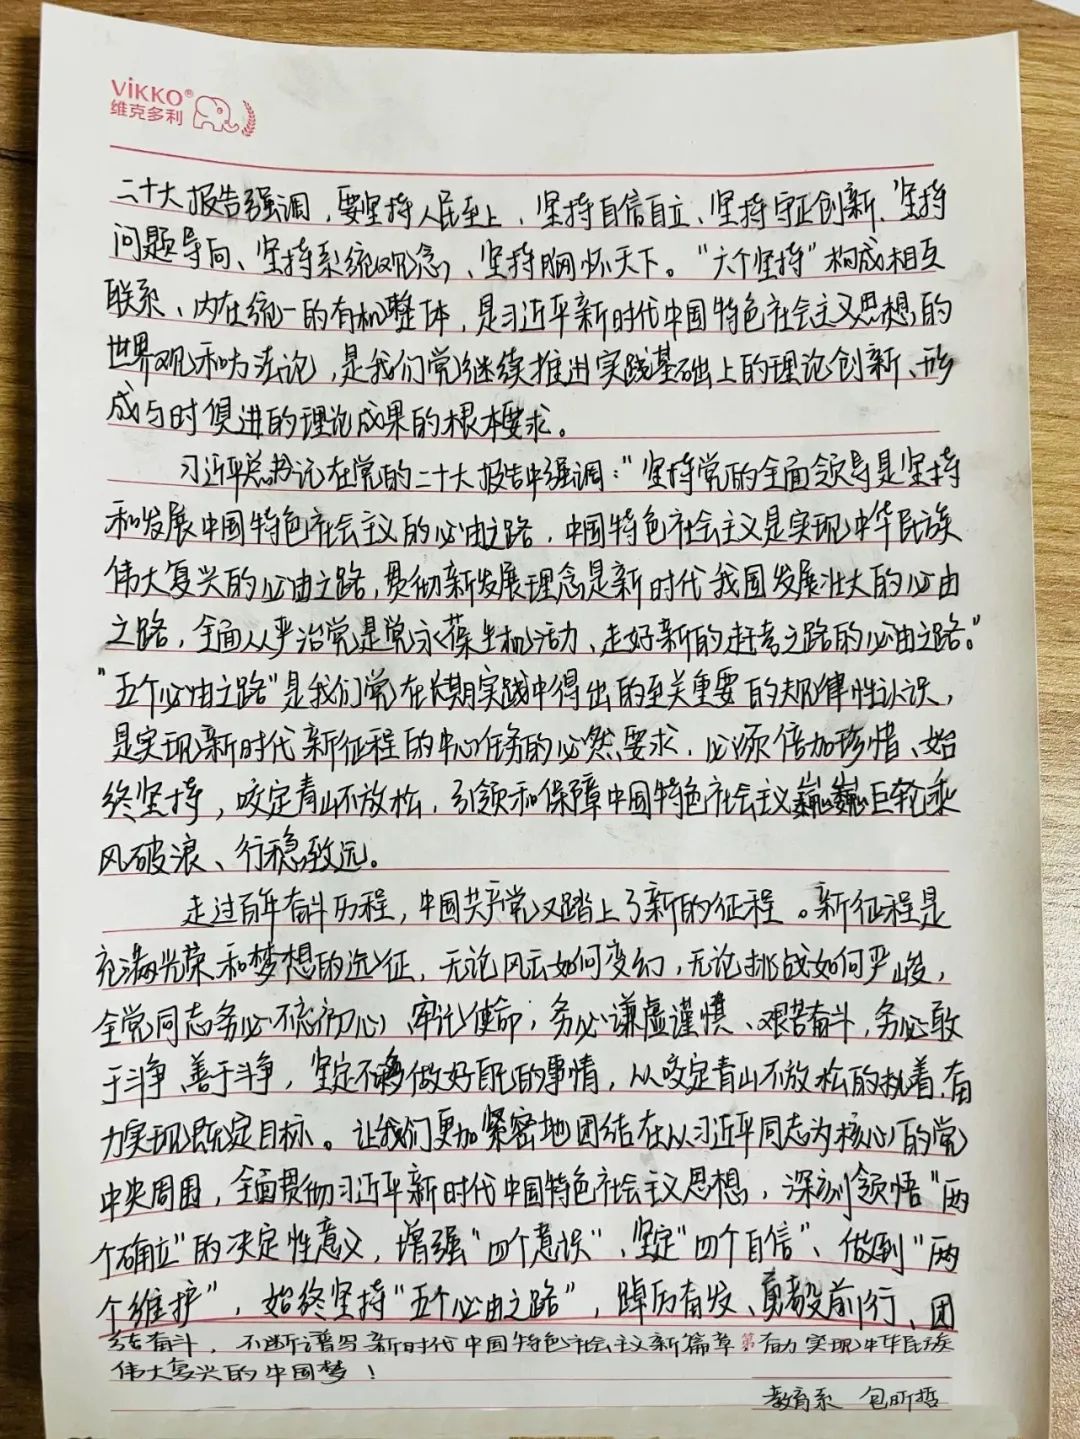 ViKKO®
维克多利
二十大报告强调，要坚持人民至上、坚持自信自立、坚持守正创新、坚持
问题导向、坚持系统观念、坚持胸怀天下。“六个坚持”构成相互
联系、内在统一的有机整体，是习近平新时代中国特色社会主义思想的
世界观和方法论，是我们党继续推进实践基础上的理论创新、形
成与时俱进的理论成果的根本要求。
习近平总书记在党的二十大报告中强调：“坚持党的全面领导是坚持
和发展中国特色社会主义的必由之路，中国特色社会主义是实现中华民族
伟大复兴的必由之路，贯彻新发展理念是新时代我国发展壮大的必由
之路，全面从严治党是党永葆生机活力、走好新的赶考之路的必由之路。”
“五个必由之路”是我们党在长期实践中得出的至关重要的规律性认识，
是实现新时代新征程的中心任务的必然要求，必须倍加珍惜、始
终坚持，咬定青山不放松，引领和保障中国特色社会主义巍巍巨轮乘
风破浪、行稳致远。
走过百年奋斗历程，中国共产党又踏上了新的征程。新征程是
充满光荣和梦想的远征，无论风云如何变幻，无论挑战如何严峻，
全党同志务必不忘初心、牢记使命，务必谦虚谨慎、艰苦奋斗，务必敢
于斗争、善于斗争，坚定不移做好自己的事情，从咬定青山不放松的执着，奋
力实现既定目标。让我们更加紧密地团结在以习近平同志为核心的党
中央周围，全面贯彻习近平新时代中国特色社会主义思想，深刻领悟“两
个确立”的决定性意义，增强“四个意识”、坚定“四个自信”、做到“两
个维护”，始终坚持“五个必由之路”，踔厉奋发、勇毅前行、团
结奋斗，不断谱写新时代中国特色社会主义新篇章，奋力实现中华民族
伟大复兴的中国梦！
第
教育系 包昕哲